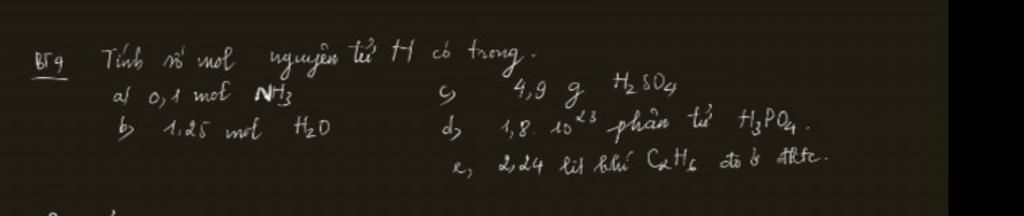 BT9 Tính số mol nguyên tử H có trong.
a) 0,1 mol NH3
b) 1,25 mol H2O
c) 4,9 g H2SO4
d) 1,8. 10^23 phân tử H3PO4.
e, 2,24 lít khí C2H6 đo ở đktc.